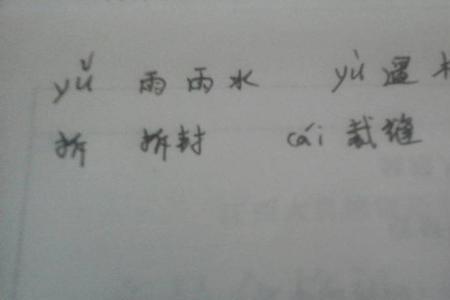 yǔ 雨 雨水 yù 遇
拆 拆封 cái 裁缝